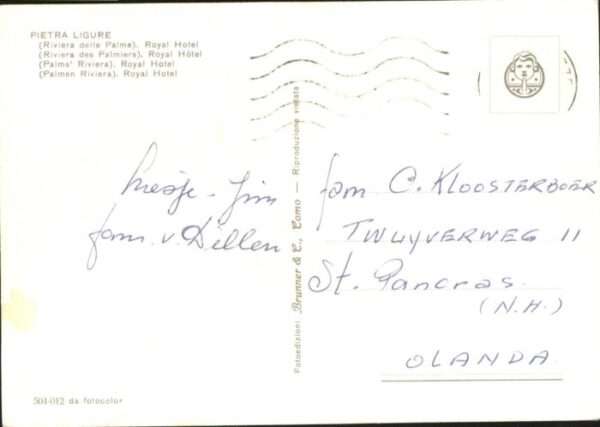 PIETRA LIGURE
(Riviera delle Palme). Royal Hotel
(Riviera des Palmiers). Royal Hôtel
(Palms' Riviera). Royal Hotel
(Palmen Riviera). Royal Hotel
Jim
fam. v. Dillen
Fotoedizioni Brunner & C., Como — Riproduzione vietata
fam C. KLOOSTERBOER
TWUYVERWEG 11
St. Pancras
(N.H.)
OLANDA
504-012 da fotocolor